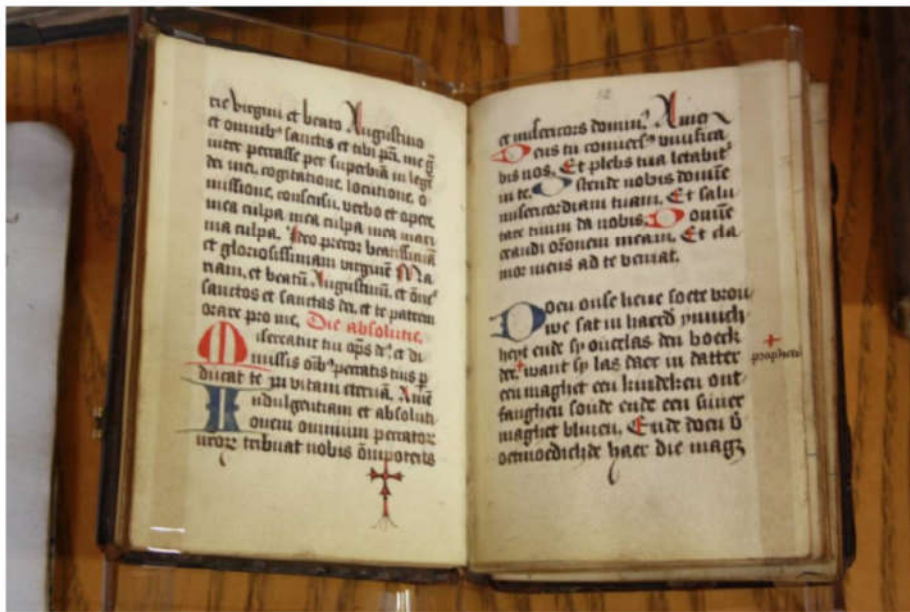 rie virgini et beato Augustino
et omnib⁹ sanctis et tibi pr̄, me g̃
iuter peccasse per superbiā in lege
dei mei, cogitatione, locutione, o
missione, consensu, verbo et opere,
mea culpa mea culpa mea maxi
ma culpa. Ideo precor beatissimā
et gloriosissimam virginē Ma
riam, et beatū Augustinum, et ōnes
sanctos et sanctas dei, et te patrem
orare pro me. Die absolutie.
Misereatur tui op̄s d⁹, et di
missis oīb⁹ peccatis tuis p
ducat te in vitam eternā. Amē
Indulgentiam et absoluti
onem omnium peccator
uror tribuat nobis ōmipotens
52
et misericors domin⁹. Amen
Deus tu convers⁹ vivifica
bis nos. Et plebs tua letabit᷑
in te. Ostende nobis domine
misericordiam tuam. Et salu
tare tuum da nobis. Domine
exaudi oīonem meam. Et cla
mor meus ad te veniat.
Doen onse lieve soete vrou
we sat in haerd ynnich
heyt ende sy overlas den boeck
der + want sy las daer in datter
een maghet een kindeken ont
fanghen soude ende een suver
maghet bliven. Ende doen v̄
oetmoedichde haer die magz
+
propheten